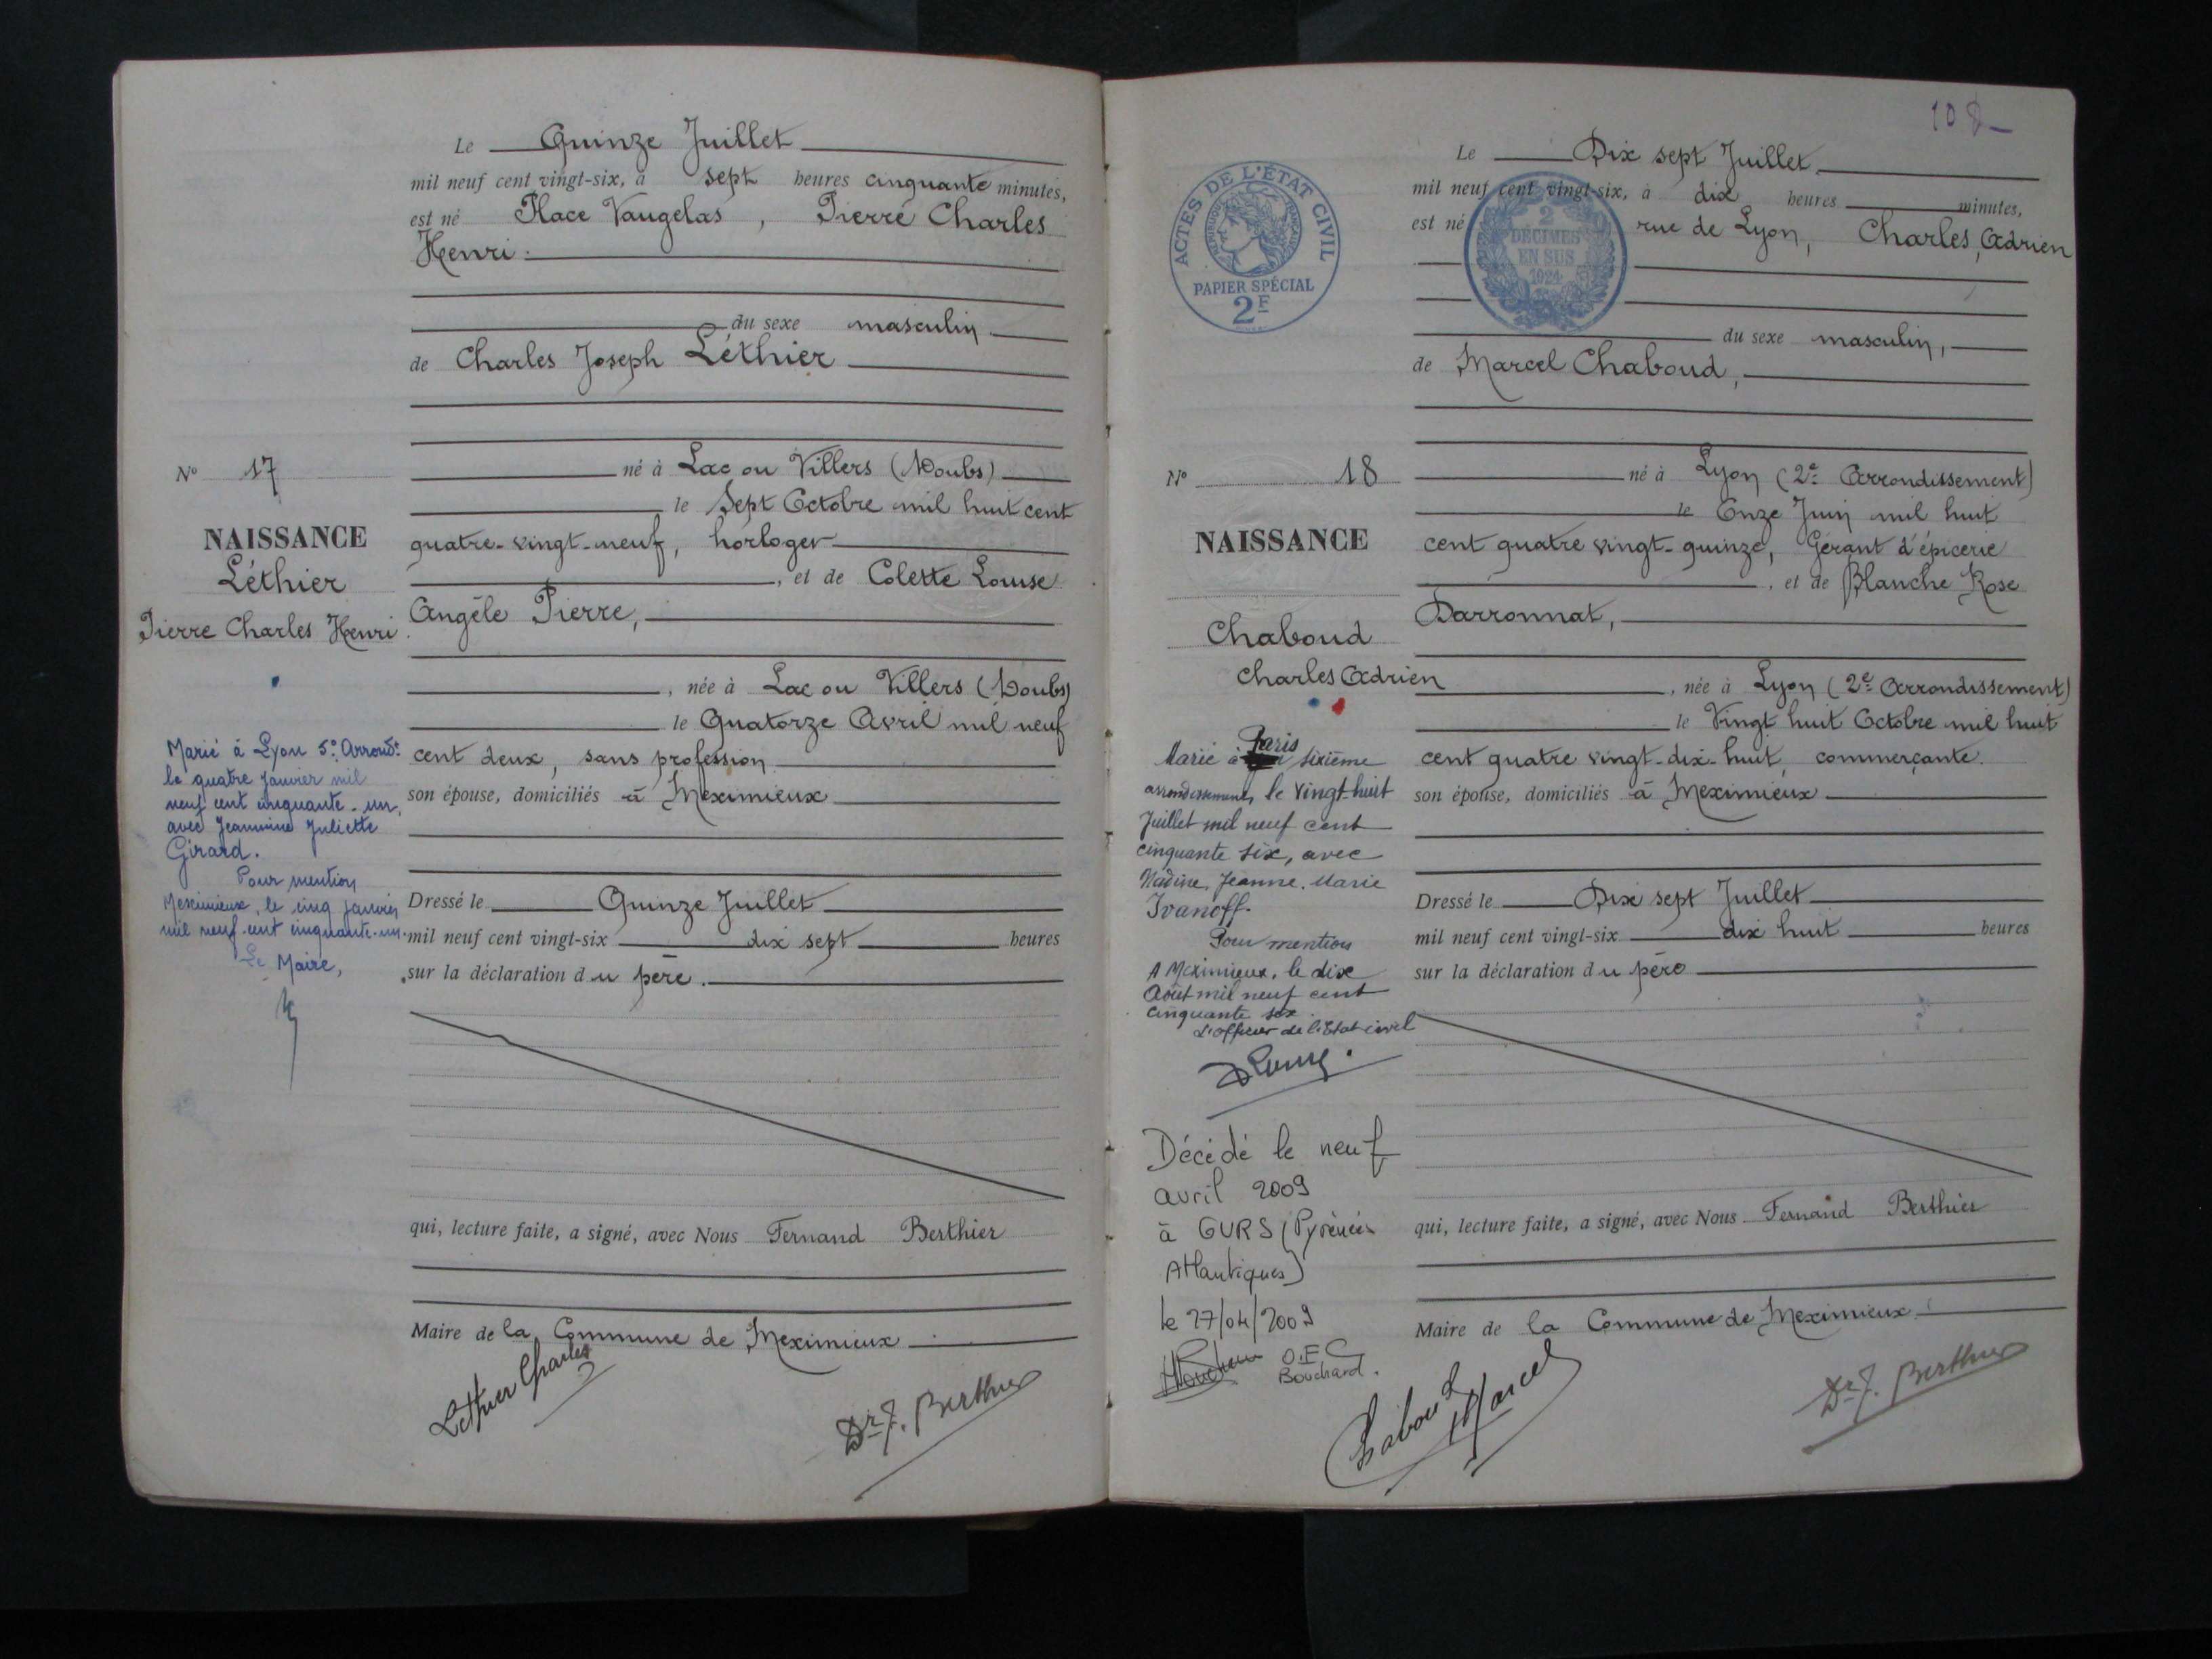 Le Quinze Juillet
mil neuf cent vingt-six, à sept heures cinquante minutes,
est né Place Vaugelas, Pierre Charles
Henri.
du sexe masculin
de Charles Joseph Léthier
né à Lac ou Villers (Doubs)
le Sept Octobre mil huit cent
quatre-vingt-neuf, horloger
, et de Colette Louise
Angèle Pierre,
, née à Lac ou Villers (Doubs)
le Quatorze Avril mil neuf
cent deux, sans profession
son épouse, domiciliés à Meximieux
Dressé le Quinze Juillet
mil neuf cent vingt-six dix sept heures
sur la déclaration du père.
qui, lecture faite, a signé, avec Nous Fernand Berthier
Maire de la Commune de Meximieux
Léthier Charles
Dr F. Berthier
N° 17
NAISSANCE
Léthier
Pierre Charles Henri
Marié à Lyon 5e Arrondt
le quatre janvier mil
neuf cent cinquante-un,
avec Jeannine Juliette
Girard.
Pour mention
Meximieux, le cinq janvier
mil neuf cent cinquante-un.
Le Maire,
108
Le Dix sept Juillet
mil neuf cent vingt-six, à dix heures minutes,
est né rue de Lyon, Charles, Adrien
du sexe masculin,
de Marcel Chaboud,
né à Lyon (2e Arrondissement)
le Onze Juin mil huit
cent quatre vingt-quinze, Gérant d'épicerie
, et de Blanche Rose
Darronnat,
, née à Lyon (2e Arrondissement)
le Vingt huit Octobre mil huit
cent quatre vingt-dix-huit, commerçante.
son épouse, domiciliés à Meximieux
Dressé le Dix sept Juillet
mil neuf cent vingt-six dix huit heures
sur la déclaration du père
qui, lecture faite, a signé, avec Nous Fernand Berthier
Maire de la Commune de Meximieux
Chaboud Marcel
Dr F. Berthier
ACTES DE L'ÉTAT CIVIL
RÉPUBLIQUE FRANÇAISE
PAPIER SPÉCIAL
2F
2
DÉCIMES
EN SUS
1924
N° 18
NAISSANCE
Chaboud
Charles Adrien
Paris
Marié à sixième
arrondissement, le vingt-huit
Juillet mil neuf cent
cinquante six, avec
Nadine, Jeanne, Marie
Ivanoff.
Pour mention
A Meximieux, le dix
Août mil neuf cent
cinquante six
L'officier de l'Etat civil
Décédé le neuf
avril 2009
à GURS (Pyrénées
Atlantiques)
le 27/04/2009
O.E.C
Bouchard.